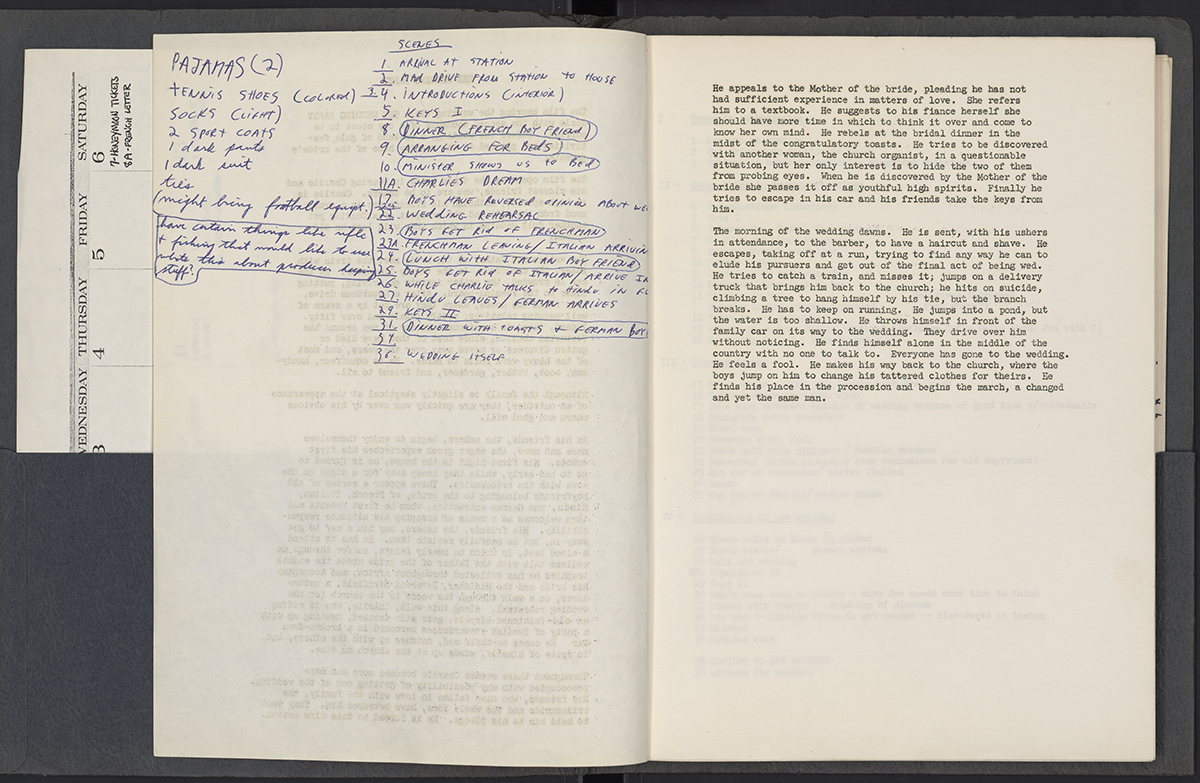 SATURDAY
6
7-HONEYMOON TICKETS
8A-FRENCH LETTER
FRIDAY
5
THURSDAY
4
WEDNESDAY
3
PAJAMAS (2)
TENNIS SHOES (COLORED)
SOCKS (LIGHT)
2 SPORT COATS
1 dark pants
1 dark suit
ties
(might bring football equipt.)
have certain things like rifle
+ fishing that would like to use
wrote this about producer keeping
stuff?
SCENES
1. ARRIVAL AT STATION
2. MAD DRIVE FROM STATION TO HOUSE
3. 4. INTRODUCTIONS (INTERIOR)
5. KEYS I
8. DINNER (FRENCH BOY FRIEND)
9. ARRANGING FOR BEDS
10. MINISTER SHOWS US TO BED
11A. CHARLIE'S DREAM
17. BOYS HAVE REVERSED OPINION ABOUT WE
22. WEDDING REHEARSAL
23. BOYS GET RID OF FRENCHMAN
23A. FRENCHMAN LEAVING / ITALIAN ARRIVIN
24. LUNCH WITH ITALIAN BOY FRIEND
25. BOYS GET RID OF ITALIAN / ARRIVE
26. WHILE CHARLIE TALKS TO HINDU IN
27. HINDU LEAVES / GERMAN ARRIVES
29. KEYS II
31. DINNER WITH TOASTS + GERMAN BOY
34.
36. WEDDING ITSELF
He appeals to the Mother of the bride, pleading he has not
had sufficient experience in matters of love. She refers
him to a textbook. He suggests to his fiance herself she
should have more time in which to think it over and come to
know her own mind. He rebels at the bridal dinner in the
midst of the congratulatory toasts. He tries to be discovered
with another woman, the church organist, in a questionable
situation, but her only interest is to hide the two of them
from probing eyes. When he is discovered by the Mother of the
bride she passes it off as youthful high spirits. Finally he
tries to escape in his car and his friends take the keys from
him.
The morning of the wedding dawns. He is sent, with his ushers
in attendance, to the barber, to have a haircut and shave. He
escapes, taking off at a run, trying to find any way he can to
elude his pursuers and get out of the final act of being wed.
He tries to catch a train, and misses it; jumps on a delivery
truck that brings him back to the church; he hits on suicide,
climbing a tree to hang himself by his tie, but the branch
breaks. He has to keep on running. He jumps into a pond, but
the water is too shallow. He throws himself in front of the
family car on its way to the wedding. They drive over him
without noticing. He finds himself alone in the middle of the
country with no one to talk to. Everyone has gone to the wedding.
He feels a fool. He makes his way back to the church, where the
boys jump on him to change his tattered clothes for theirs. He
finds his place in the procession and begins the march, a changed
and yet the same man.